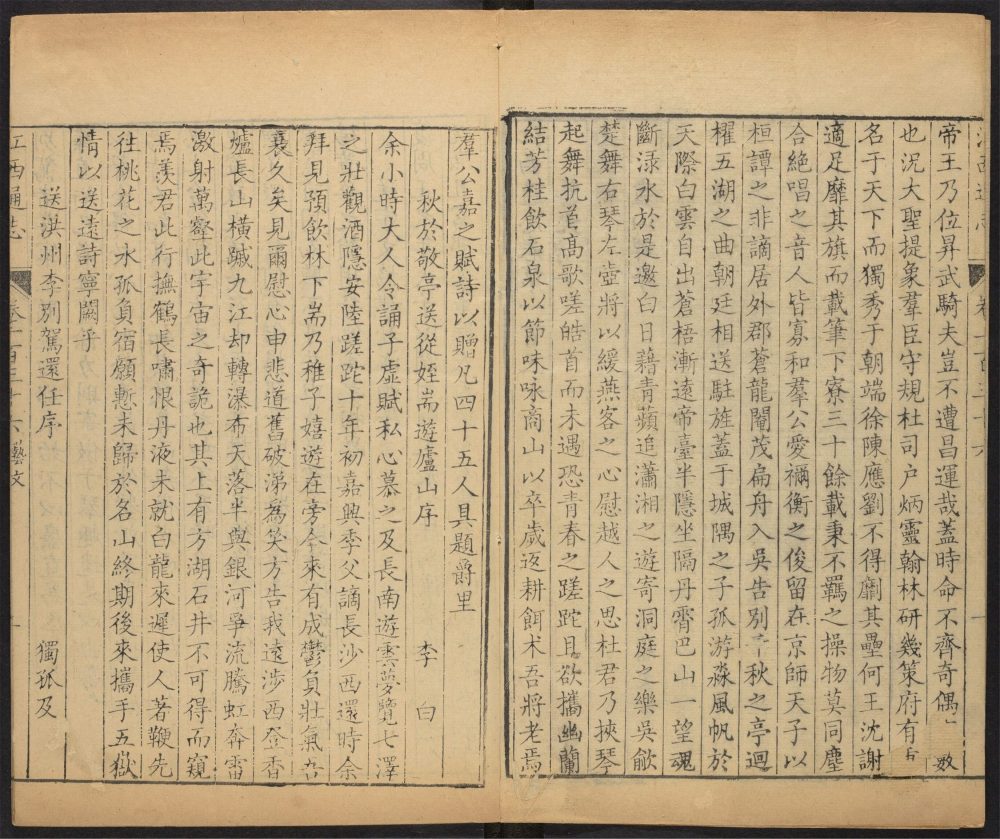 帝王乃位昇武騎夫豈不遭昌運哉蓋時命不齊奇偶數
也況大聖提象羣臣守規杜司户炳靈翰林研幾策府有
名于天下而獨秀于朝端徐陳應劉不得劘其壘何王沈謝
適足靡其旗而載筆下寮三十餘載秉不羈之操物莫同塵
合絶唱之音人皆寡和羣公愛禰衡之俊留在京師天子以
桓譚之非謫居外郡蒼龍閹茂扁舟入吳告別千秋之亭迴
櫂五湖之曲朝廷相送駐旌蓋于城隅之子孤游淼風帆於
天際白雲自出蒼梧漸遠帝臺半隱坐隔丹霄巴山一望魂
斷渌水於是邀白日藉青蘋追瀟湘之遊寄洞庭之樂吳歈
楚舞右琴左壺將以緩燕客之心慰越人之思杜君乃挾琴
起舞抗首高歌嗟皓首而未遇恐青春之蹉跎且欲攜幽蘭
結芳桂飲石泉以節味咏商山以卒歲返耕餌术吾將老焉
羣公嘉之賦詩以贈凡四十五人具題爵里
秋於敬亭送從姪耑遊廬山序 李白
余小時大人令誦子虛賦私心慕之及長南遊雲夢覽七澤
之壯觀酒隱安陸蹉跎十年初嘉興季父謫長沙西還時余
拜見預飲林下耑乃稚子嬉遊在旁今來有成鬱負壯氣吾
衰久矣見爾慰心申悲道舊破涕為笑方告我遠涉西登香
爐長山橫蹴九江却轉瀑布天落半與銀河爭流騰虹奔雷
激射萬壑此宇宙之奇詭也其上有方湖石井不可得而窺
焉羨君此行撫鶴長嘯恨丹液未就白龍來遲使人著鞭先
往桃花之水孤負宿願慙未歸於名山終期後來攜手五嶽
情以送遠詩寧闕乎
送洪州李別駕還任序 獨孤及
江西通志 卷一百三十六 藝文